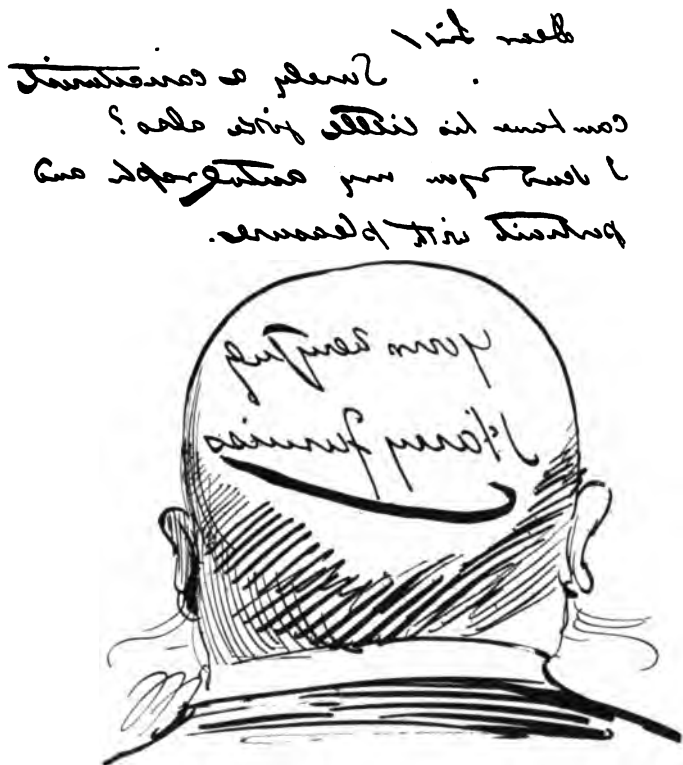 Dear Sir/
Surely a caricaturist
can have his little joke also?
I send you my autograph and
portrait with pleasure.
Yours very truly
Harry Furniss